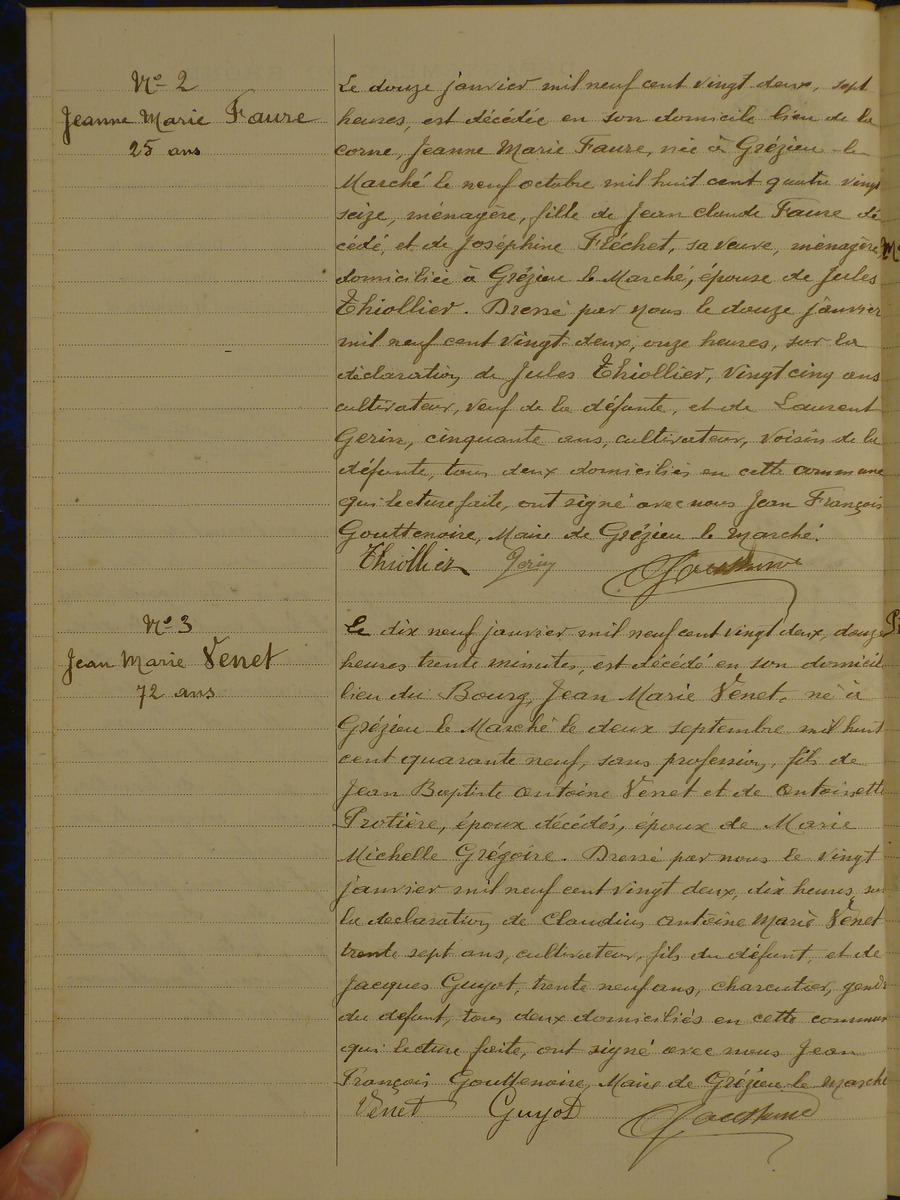 N° 2
Jeanne Marie Faure
25 ans
Le douze janvier mil neuf cent vingt deux, sept
heures, est décédée en son domicile lieu de la
corne, Jeanne Marie Faure, née à Grézieu-le-
Marché le neuf octobre mil huit cent quatre vingt
seize, ménagère, fille de Jean Claude Faure dé
cédé, et de Joséphine Fléchet, sa veuve, ménagère
domiciliée à Grézieu le Marché, épouse de Jules
Thiollier. Dressé par nous le douze janvier
mil neuf cent vingt-deux, onze heures, sur la
déclaration de Jules Thiollier, vingt cinq ans
cultivateur, veuf de la défunte, et de Laurent
Gerin, cinquante ans, cultivateur, voisin de la
défunte, tous deux domiciliés en cette commune
qui lecture faite, ont signé avec nous Jean François
Gouttenoire, Maire de Grézieu le Marché.
Thiollier Gerin Gouttenoire
N° 3
Jean Marie Venet
72 ans
Le dix neuf janvier mil neuf cent vingt deux, douze
heures trente minutes, est décédé en son domicil
lieu du Bourg, Jean Marie Venet, né à
Grézieu le Marché le deux septembre mil huit
cent quarante neuf, sans profession, fils de
Jean Baptiste Antoine Venet et de Antoinette
Protière, époux décédés, époux de Marie
Michelle Grégoire. Dressé par nous le vingt
janvier mil neuf cent vingt deux, dix heures, sur
la declaration de Claudius Antoine Marie Venet
trente sept ans, cultivateur, fils du défunt, et de
Jacques Guyot, trente neuf ans, charcutier, gendr
du defunt, tous deux domiciliés en cette commun
qui lecture faite, ont signé avec nous Jean
François Gouttenoire, Maire de Grézieu le Marché
Venet Guyot Gouttenoire